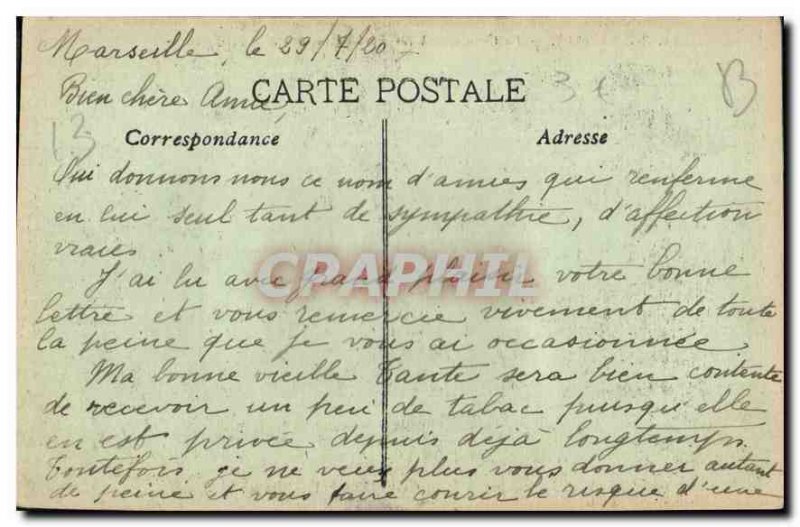 Marseille, le 29/7/20
Bien chère Amie,
CARTE POSTALE
3 €
13
13
Correspondance
Adresse
Oui donnons nous ce nom d'amies qui renferme
en lui seul tant de sympathie, d'affection
vraies.
J'ai lu avec grand plaisir votre bonne
lettre et vous remercie vivement de toute
la peine que je vous ai occasionnée.
Ma bonne vieille Tante sera bien contente
de recevoir un peu de tabac puisqu'elle
en est privée depuis déjà longtemps.
Toutefois je ne veux plus vous donner autant
de peine et vous faire courir le risque d'une
CPAPHIL